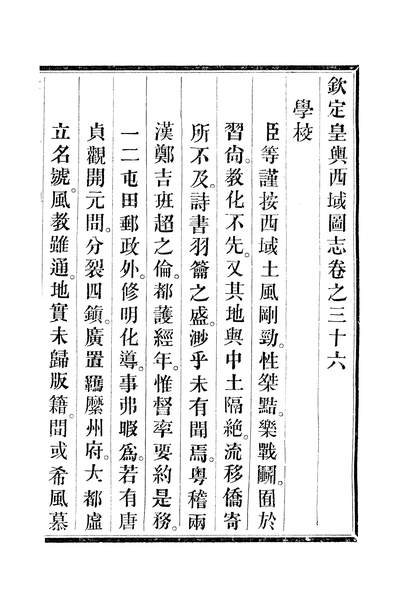 欽定皇輿西域圖志卷之三十六
學校
臣等謹按西域土風剛勁。性桀黠。樂戰鬭。囿於
習尙。敎化不先。又其地與中土隔絶。流移僑寄
所不及。詩書羽籥之盛。渺乎未有聞焉。粤稽兩
漢鄭吉班超之倫。都護經年。惟督率要約是務。
一二屯田郵政外。修明化導。事弗暇爲。若有唐
貞觀開元間。分裂四鎭。廣置羈縻州府。大都虛
立名號。風敎雖通。地實未歸版籍。間或希風慕